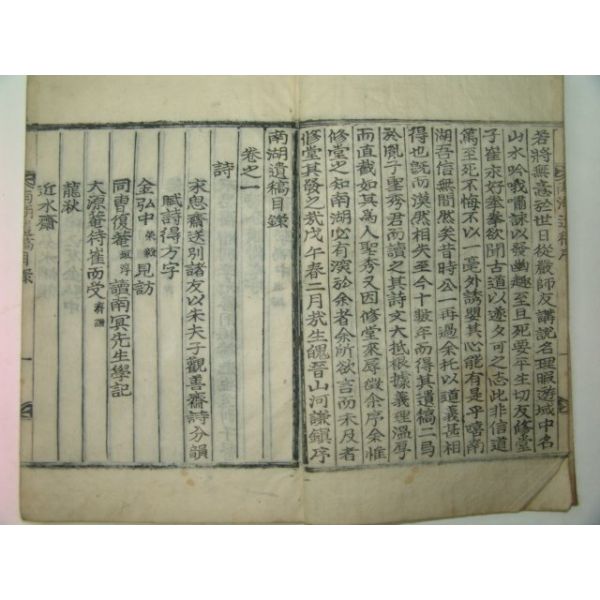 若將無意於世日從嚴師友講說名理暇遊域中名
山水吟哦嘯詠以發幽趣至且死要平生切友修堂
子崔永好拳拳欲聞古道以遂夕可之志此非信道
篤至死不悔不以一毫外誘嬰其心能有是乎噫南
湖吾信無間然矣昔時公一再過余托以道義甚相
得也旣而漠然相失至今十數年而得其遺稿二局
於胤子聖秀君而讀之其詩文大抵根據義理溫厚
而直截如其爲人聖秀又因修堂來辱徵余序余惟
修堂之知南湖必有深於余者余所欲言而未及者
修堂其發之哉戊午春二月哉生魄晉山河謙鎭序
南湖遺稿目錄
卷之一
詩
求思齋送別諸友以朱夫子觀善齋詩分韻
賦詩得方字
金弘中 見訪
同曺復菴 讀南冥先生學記
大源菴待崔而受
龍湫
近水齋
南湖遺稿目錄 一